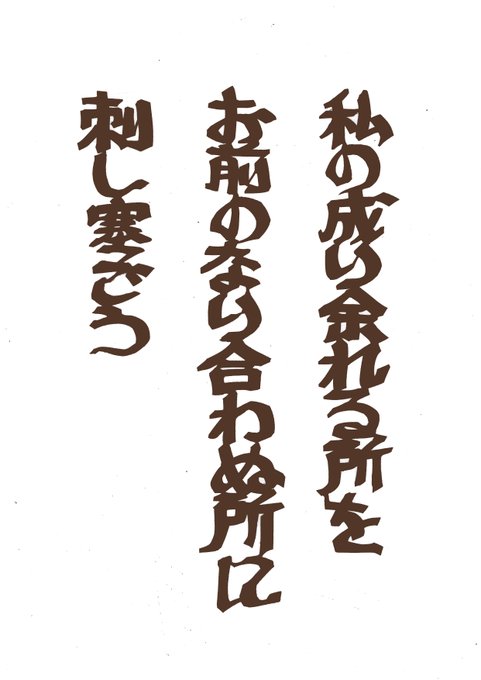 私の成り余れる所を
お前のなり合わぬ所に
刺し塞ごう